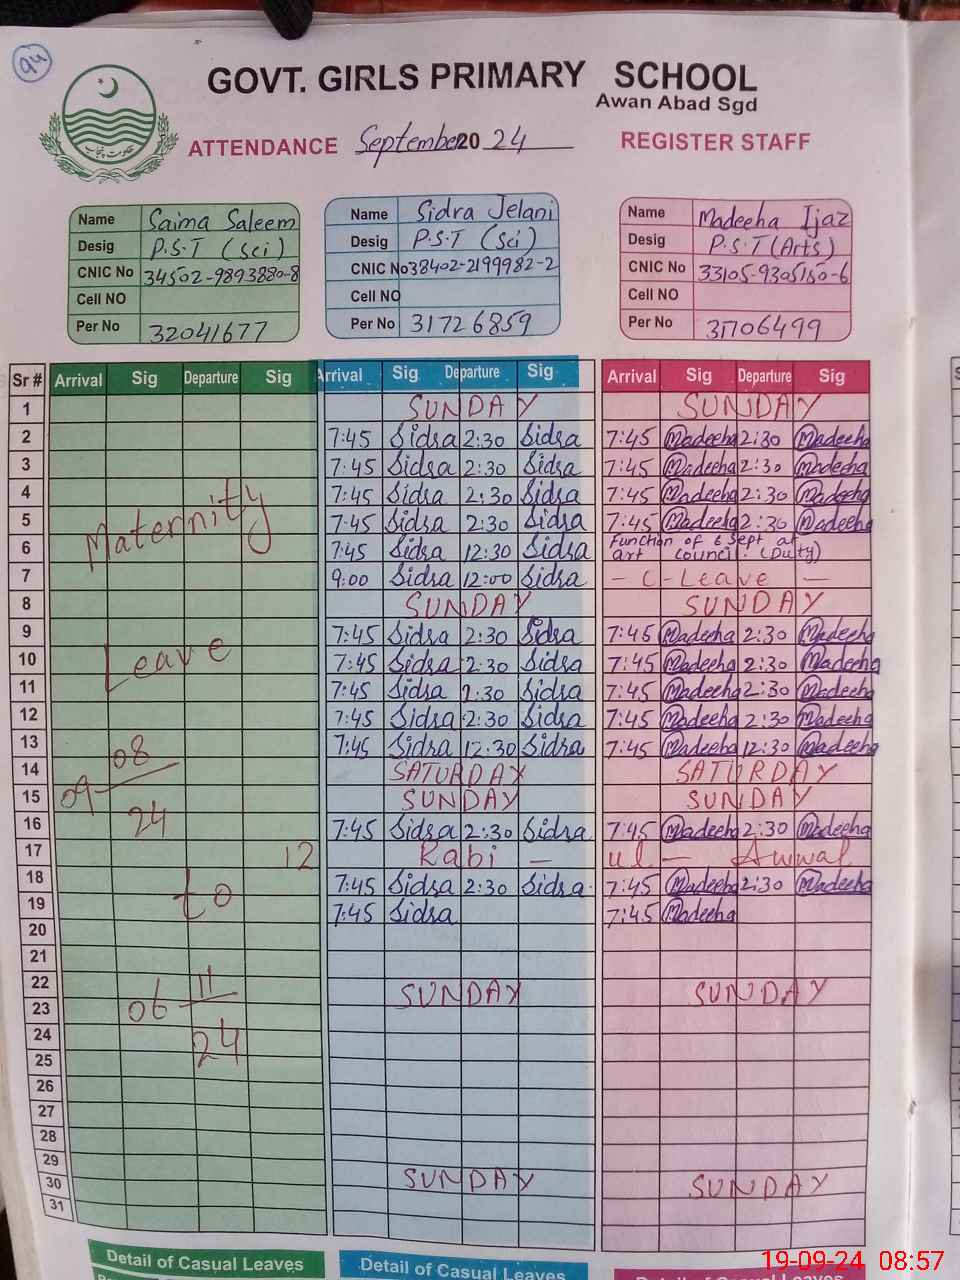 94
GOVT. GIRLS PRIMARY SCHOOL
Awan Abad Sgd
ATTENDANCE September 2024 REGISTER STAFF
حکومت پنجاب
Name Saima Saleem
Desig P.S.T (Sci)
CNIC No 34502-9893880-8
Cell NO
Per No 32041677
Name Sidra Jelani
Desig P.S.T (Sci)
CNIC No 38402-2199982-2
Cell NO
Per No 31726859
Name Madeeha Ijaz
Desig P.S.T (Arts)
CNIC No 33105-9305150-6
Cell NO
Per No 31706499
Sr # Arrival Sig Departure Sig Arrival Sig Departure Sig Arrival Sig Departure Sig
1 SUNDAY SUNDAY
2 7:45 Sidra 2:30 Sidra 7:45 Madeeha 2:30 Madeeha
3 7:45 Sidra 2:30 Sidra 7:45 Madeeha 2:30 Madeeha
4 7:45 Sidra 2:30 Sidra 7:45 Madeeha 2:30 Madeeha
5 Maternity 7:45 Sidra 2:30 Sidra 7:45 Madeeha 2:30 Madeeha
6 7:45 Sidra 12:30 Sidra Function of 6 Sept at art council. (Duty)
7 9:00 Sidra 12:00 Sidra - C-Leave -
8 SUNDAY SUNDAY
9 7:45 Sidra 2:30 Sidra 7:45 Madeeha 2:30 Madeeha
10 Leave 7:45 Sidra 2:30 Sidra 7:45 Madeeha 2:30 Madeeha
11 7:45 Sidra 2:30 Sidra 7:45 Madeeha 2:30 Madeeha
12 7:45 Sidra 2:30 Sidra 7:45 Madeeha 2:30 Madeeha
13 08 7:45 Sidra 12:30 Sidra 7:45 Madeeha 12:30 Madeeha
14 SATURDAY SATURDAY
15 09 SUNDAY SUNDAY
16 24 7:45 Sidra 2:30 Sidra 7:45 Madeeha 2:30 Madeeha
17 12 Rabi - ul - Awwal
18 to 7:45 Sidra 2:30 Sidra 7:45 Madeeha 2:30 Madeeha
19 7:45 Sidra 7:45 Madeeha
20
21
22 11 SUNDAY SUNDAY
23 06
24 24
25
26
27
28
29 SUNDAY SUNDAY
30
31
Detail of Casual Leaves Detail of Casual Leaves
19-09-24 08:57